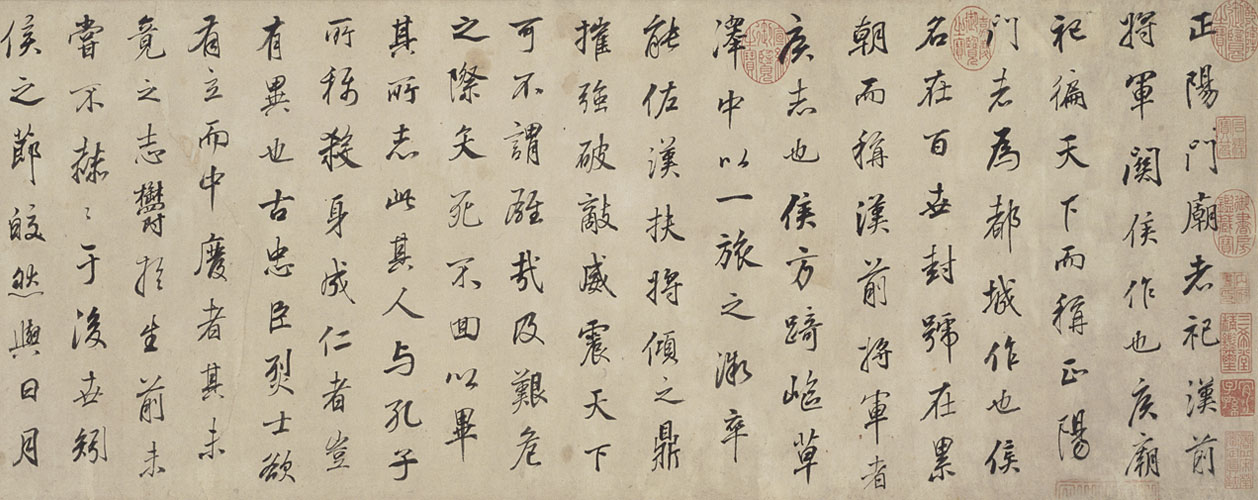 正陽門廟者祀漢前
將軍關侯作也侯廟
祀徧天下而稱正陽
門者為都城作也侯
名在百世封號在累
朝而稱漢前將軍者
侯志也侯方踦嶇草
澤中以一旅之微卒
能佐漢扶將傾之鼎
摧強破敵威震天下
可不謂雄哉及艱危
之際矢死不回以畢
其所志此其人与孔子
所称殺身成仁者豈
有異也古忠臣烈士欲
有立而中廢者其未
竟之志欝於生前未
嘗不赫〻于後世矧
侯之節皎然與日月